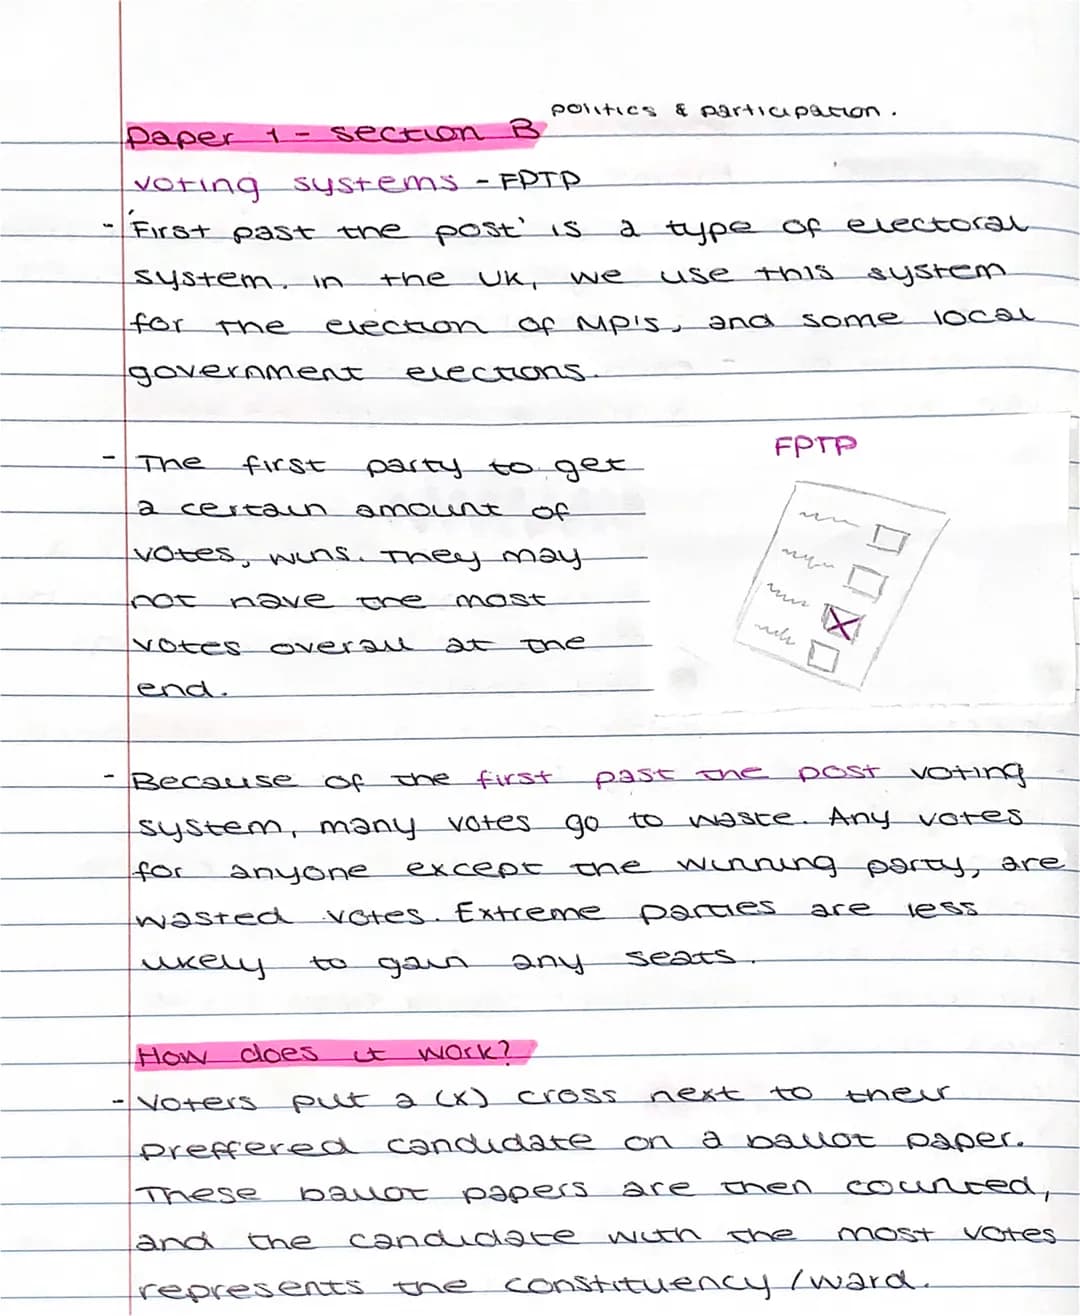 politics & participation.
Paper 1 - section B
voting systems - FPTP
- 'First past the post' is a type of electoral
system. in the UK, we use this system
for the election of MP's, and some local
government elections.
FPTP
- The first party to get
a certain amount of
votes, wins. They may
not have the most
votes overall at the
end.
- Because of the first past the post voting
system, many votes go to waste. Any votes
for anyone except the winning party, are
wasted votes. Extreme parties are less
likely to gain any seats.
How does it work?
- Voters put a (x) cross next to their
preffered candidate on a ballot paper.
These ballot papers are then counted,
and the candidate with the most votes
represents the constituency/ward.